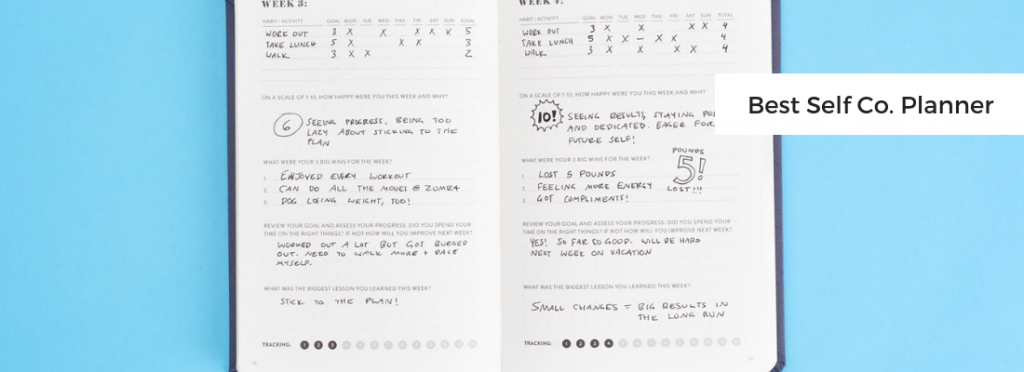 WEEK 3:
HABIT / ACTIVITY GOAL MON TUE WED THU FRI SAT SUN TOTAL
WORK OUT 3 X X X X X 5
TAKE LUNCH 5 X X X 3
WALK 3 X X 2
ON A SCALE OF 1-10, HOW HAPPY WERE YOU THIS WEEK AND WHY?
6 SEEING PROGRESS, BEING TOO
LAZY ABOUT STICKING TO THE
PLAN
WHAT WERE YOUR 3 BIG WINS FOR THE WEEK?
1. ENJOYED EVERY WORKOUT
2. CAN DO ALL THE MOVES @ ZUMBA
3. DOG LOSING WEIGHT, TOO!
REVIEW YOUR GOAL AND ASSESS YOUR PROGRESS. DID YOU SPEND YOUR
TIME ON THE RIGHT THINGS? IF NOT HOW WILL YOU IMPROVE NEXT WEEK?
WORKED OUT A LOT BUT GOT BURNED
OUT. NEED TO WALK MORE + PACE
MYSELF.
WHAT WAS THE BIGGEST LESSON YOU LEARNED THIS WEEK?
STICK TO THE PLAN!
TRACKING: 1 2 3
WEEK 4:
HABIT / ACTIVITY GOAL MON TUE WED THU FRI SAT SUN TOTAL
WORK OUT 3 X X X X 4
TAKE LUNCH 5 X X – X X 4
WALK 3 X X X X 4
ON A SCALE OF 1-10, HOW HAPPY WERE YOU THIS WEEK AND WHY?
10! SEEING RESULTS, STAYING
AND DEDICATED. EAGER FOR
FUTURE SELF!
WHAT WERE YOUR 3 BIG WINS FOR THE WEEK?
1. LOST 5 POUNDS
2. FEELING MORE ENERGY
3. GOT COMPLIMENTS!
POUNDS
5!
LOST!!!
REVIEW YOUR GOAL AND ASSESS YOUR PROGRESS. DID YOU SPEND YOUR
TIME ON THE RIGHT THINGS? IF NOT HOW WILL YOU IMPROVE NEXT WEEK?
YES! SO FAR SO GOOD. WILL BE HARD
NEXT WEEK ON VACATION
WHAT WAS THE BIGGEST LESSON YOU LEARNED THIS WEEK?
SMALL CHANGES = BIG RESULTS IN
THE LONG RUN
TRACKING: 1 2 3 4
Best Self Co. Planner